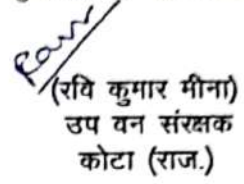 (रवि कुमार मीना)
उप वन संरक्षक
कोटा (राज.)